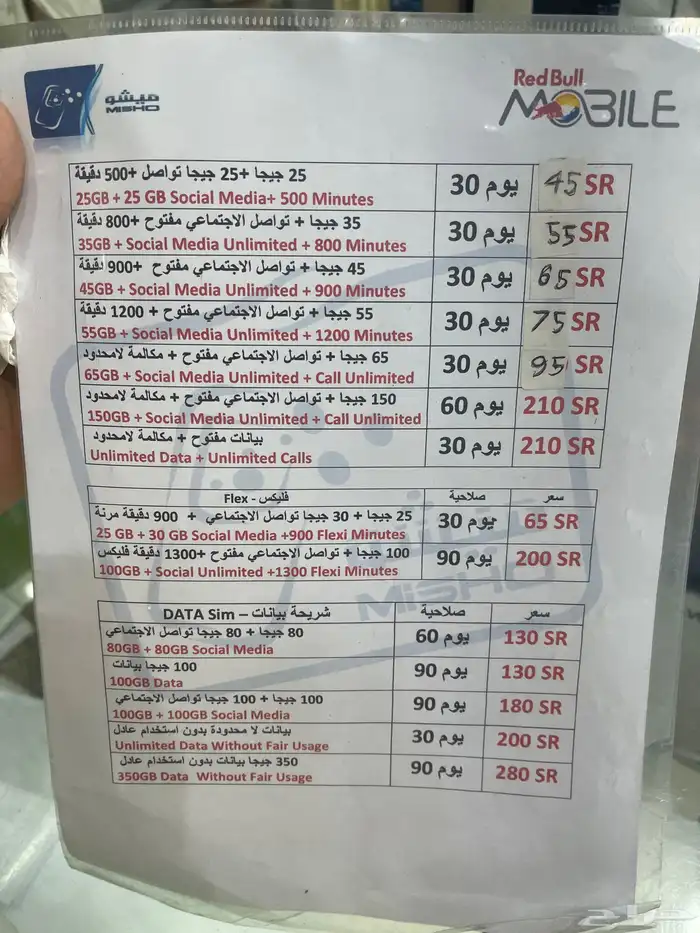 ميشو
MISHO
Red Bull
MOBILE
25 جيجا +25 جيجا تواصل +500 دقيقة
25GB + 25 GB Social Media+ 500 Minutes
30 يوم
45 SR
35 جيجا + تواصل الاجتماعي مفتوح +800 دقيقة
35GB + Social Media Unlimited + 800 Minutes
30 يوم
55 SR
45 جيجا + تواصل الاجتماعي مفتوح +900 دقيقة
45GB + Social Media Unlimited + 900 Minutes
30 يوم
65 SR
55 جيجا + تواصل الاجتماعي مفتوح + 1200 دقيقة
55GB + Social Media Unlimited + 1200 Minutes
30 يوم
75 SR
65 جيجا + تواصل الاجتماعي مفتوح + مكالمة لامحدود
65GB + Social Media Unlimited + Call Unlimited
30 يوم
95 SR
150 جيجا + تواصل الاجتماعي مفتوح + مكالمة لامحدود
150GB + Social Media Unlimited + Call Unlimited
60 يوم
210 SR
بيانات مفتوح + مكالمة لامحدود
Unlimited Data + Unlimited Calls
30 يوم
210 SR
فليكس - Flex
صلاحية
سعر
25 جيجا + 30 جيجا تواصل الاجتماعي + 900 دقيقة مرنة
25 GB + 30 GB Social Media +900 Flexi Minutes
30 يوم
65 SR
100 جيجا + تواصل الاجتماعي مفتوح +1300 دقيقة فليكس
100GB + Social Unlimited +1300 Flexi Minutes
90 يوم
200 SR
شريحة بيانات – DATA Sim
صلاحية
سعر
80 جيجا + 80 جيجا تواصل الاجتماعي
80GB + 80GB Social Media
60 يوم
130 SR
100 جيجا بيانات
100GB Data
90 يوم
130 SR
100 جيجا + 100 جيجا تواصل الاجتماعي
100GB + 100GB Social Media
90 يوم
180 SR
بيانات لا محدودة بدون استخدام عادل
Unlimited Data Without Fair Usage
30 يوم
200 SR
350 جيجا بيانات بدون استخدام عادل
350GB Data Without Fair Usage
90 يوم
280 SR
MISHO
حراج